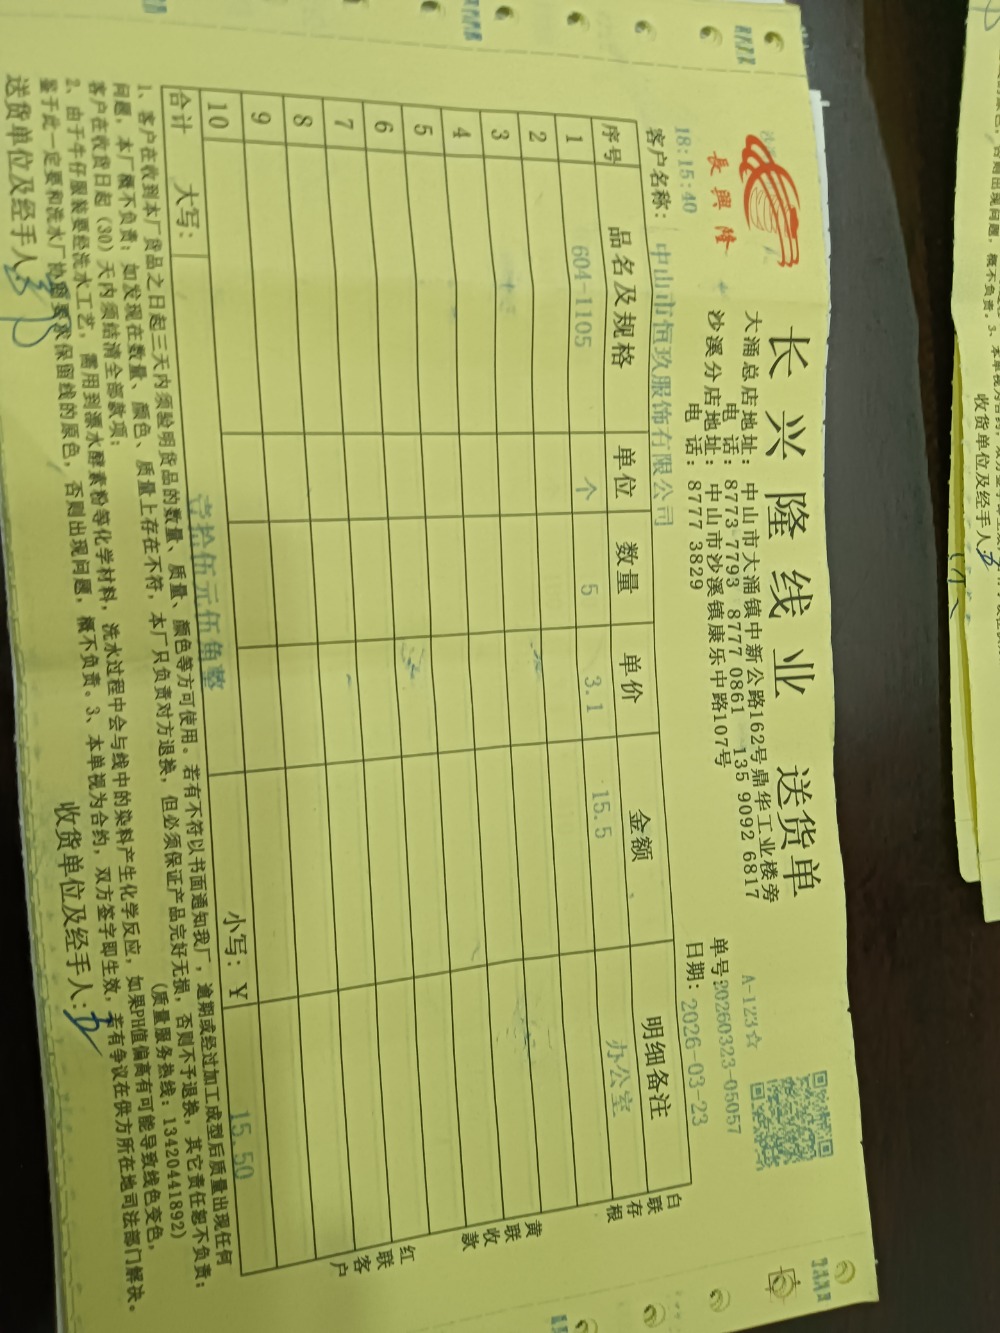 長興隆
长兴隆线业 送货单
A-123☆
大涌总店地址：中山市大涌镇中新公路162号鼎华工业楼旁
电 话：8773 7793 8777 0861 135 9092 6817
沙溪分店地址：中山市沙溪镇康乐中路107号
电 话：8777 3829
单号:20260323-05057
日期：2026-03-23
18:15:40
客户名称：中山市恒玖服饰有限公司
序号 品名及规格 单位 数量 单价 金额 明细备注
1 604-1105 个 5 3.1 15.5 办公室
2
3
4
5
6
7
8
9
10
合计 大写：壹拾伍元伍角整 小写：￥ 15.50
白联存根
黄联收款
红联客户
1、客户在收到本厂货品之日起三天内须验明货品的数量、质量、颜色等方可使用。若有不符以书面通知我厂，逾期或经过加工成型后质量出现任何
问题，本厂概不负责；如发现在数量、颜色、质量上存在不符，本厂只负责对方退换，但必须保证产品完好无损，否则不予退换，其它责任恕不负责；
客户在收货日起（30）天内须结清全部款项； (质量服务热线：13420441892)
2、由于牛仔服装要经洗水工艺，需用到漂水酵素粉等化学材料，洗水过程中会与线中的染料产生化学反应，如果PH值偏高有可能导致线色变色，
鉴于此一定要和洗水厂协调要求保留线的原色，否则出现问题，概不负责。3、本单视为合约，双方签字即生效，若有争议在供方所在地司法部门解决。
送货单位及经手人： 收货单位及经手人：
否则出现问题，概不负责。3、本单视为合约，双方签
收货单位及经手人